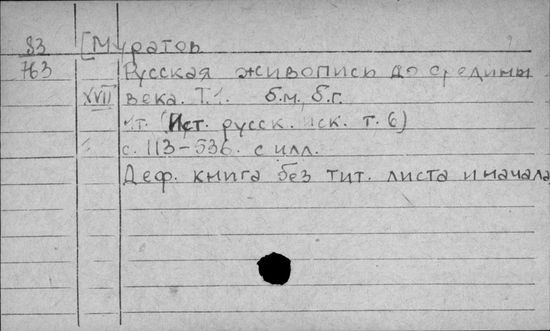 83 [Муратов
763 Русская живопись до средины
XVII века. Т.1. б.м., б.г.
(Ист. русск. иск. т. 6)
с. 113-536. с илл.
Деф. книга без тит. листа и начала